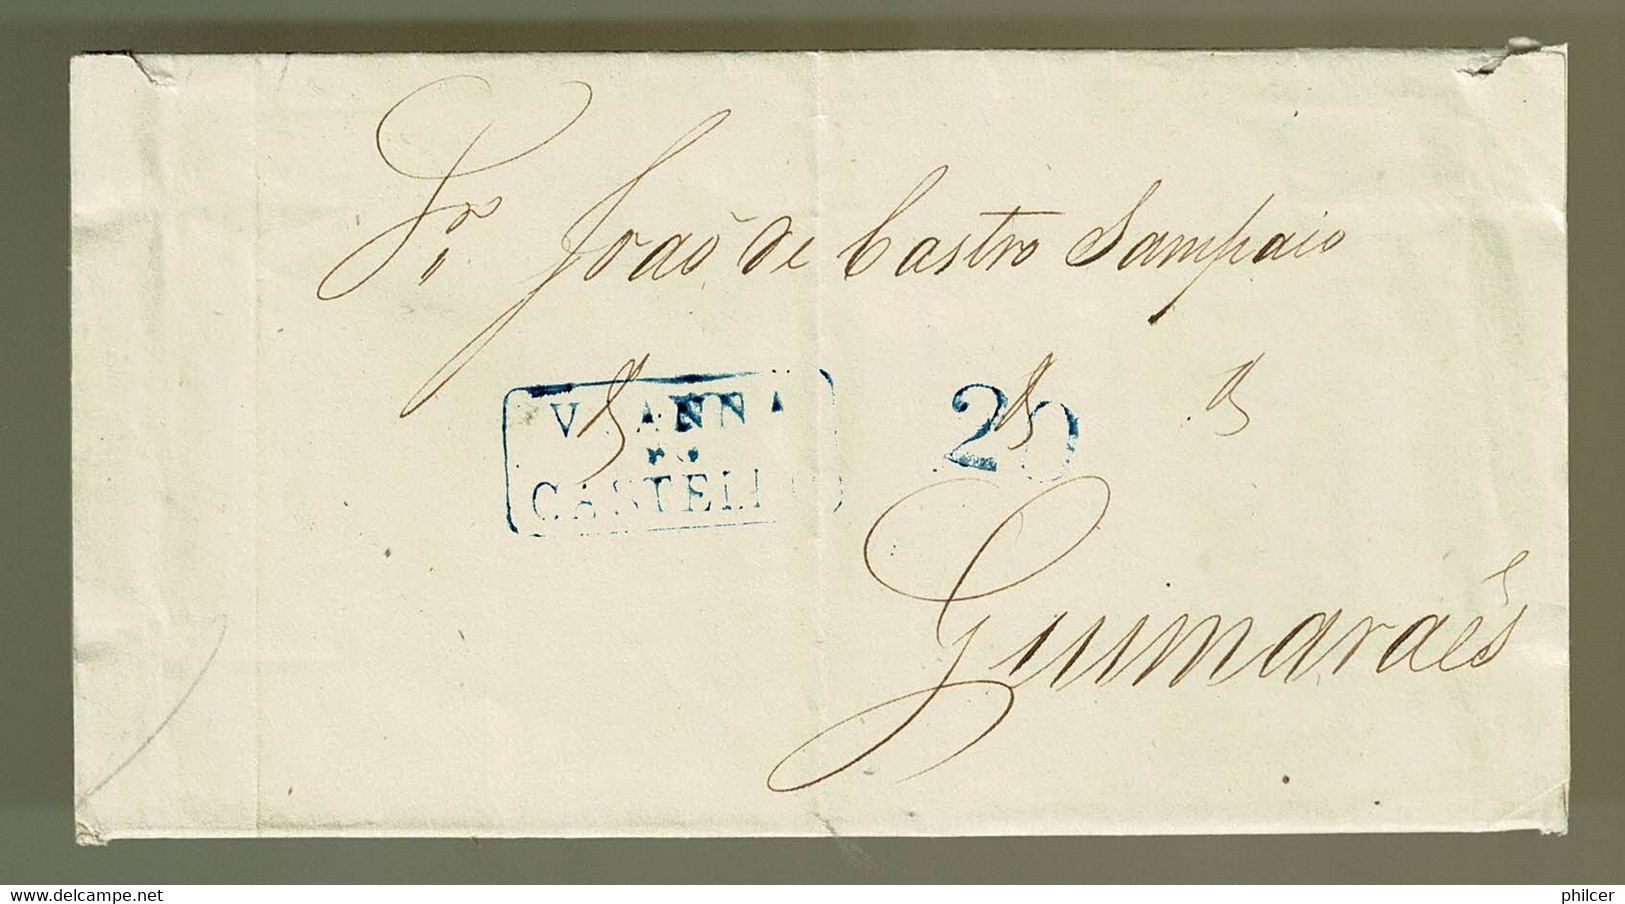 Sr. João de Castro Sampaio
VIANNA
DO
CASTELLO
20
Guimarães
delcampe.net
philcer